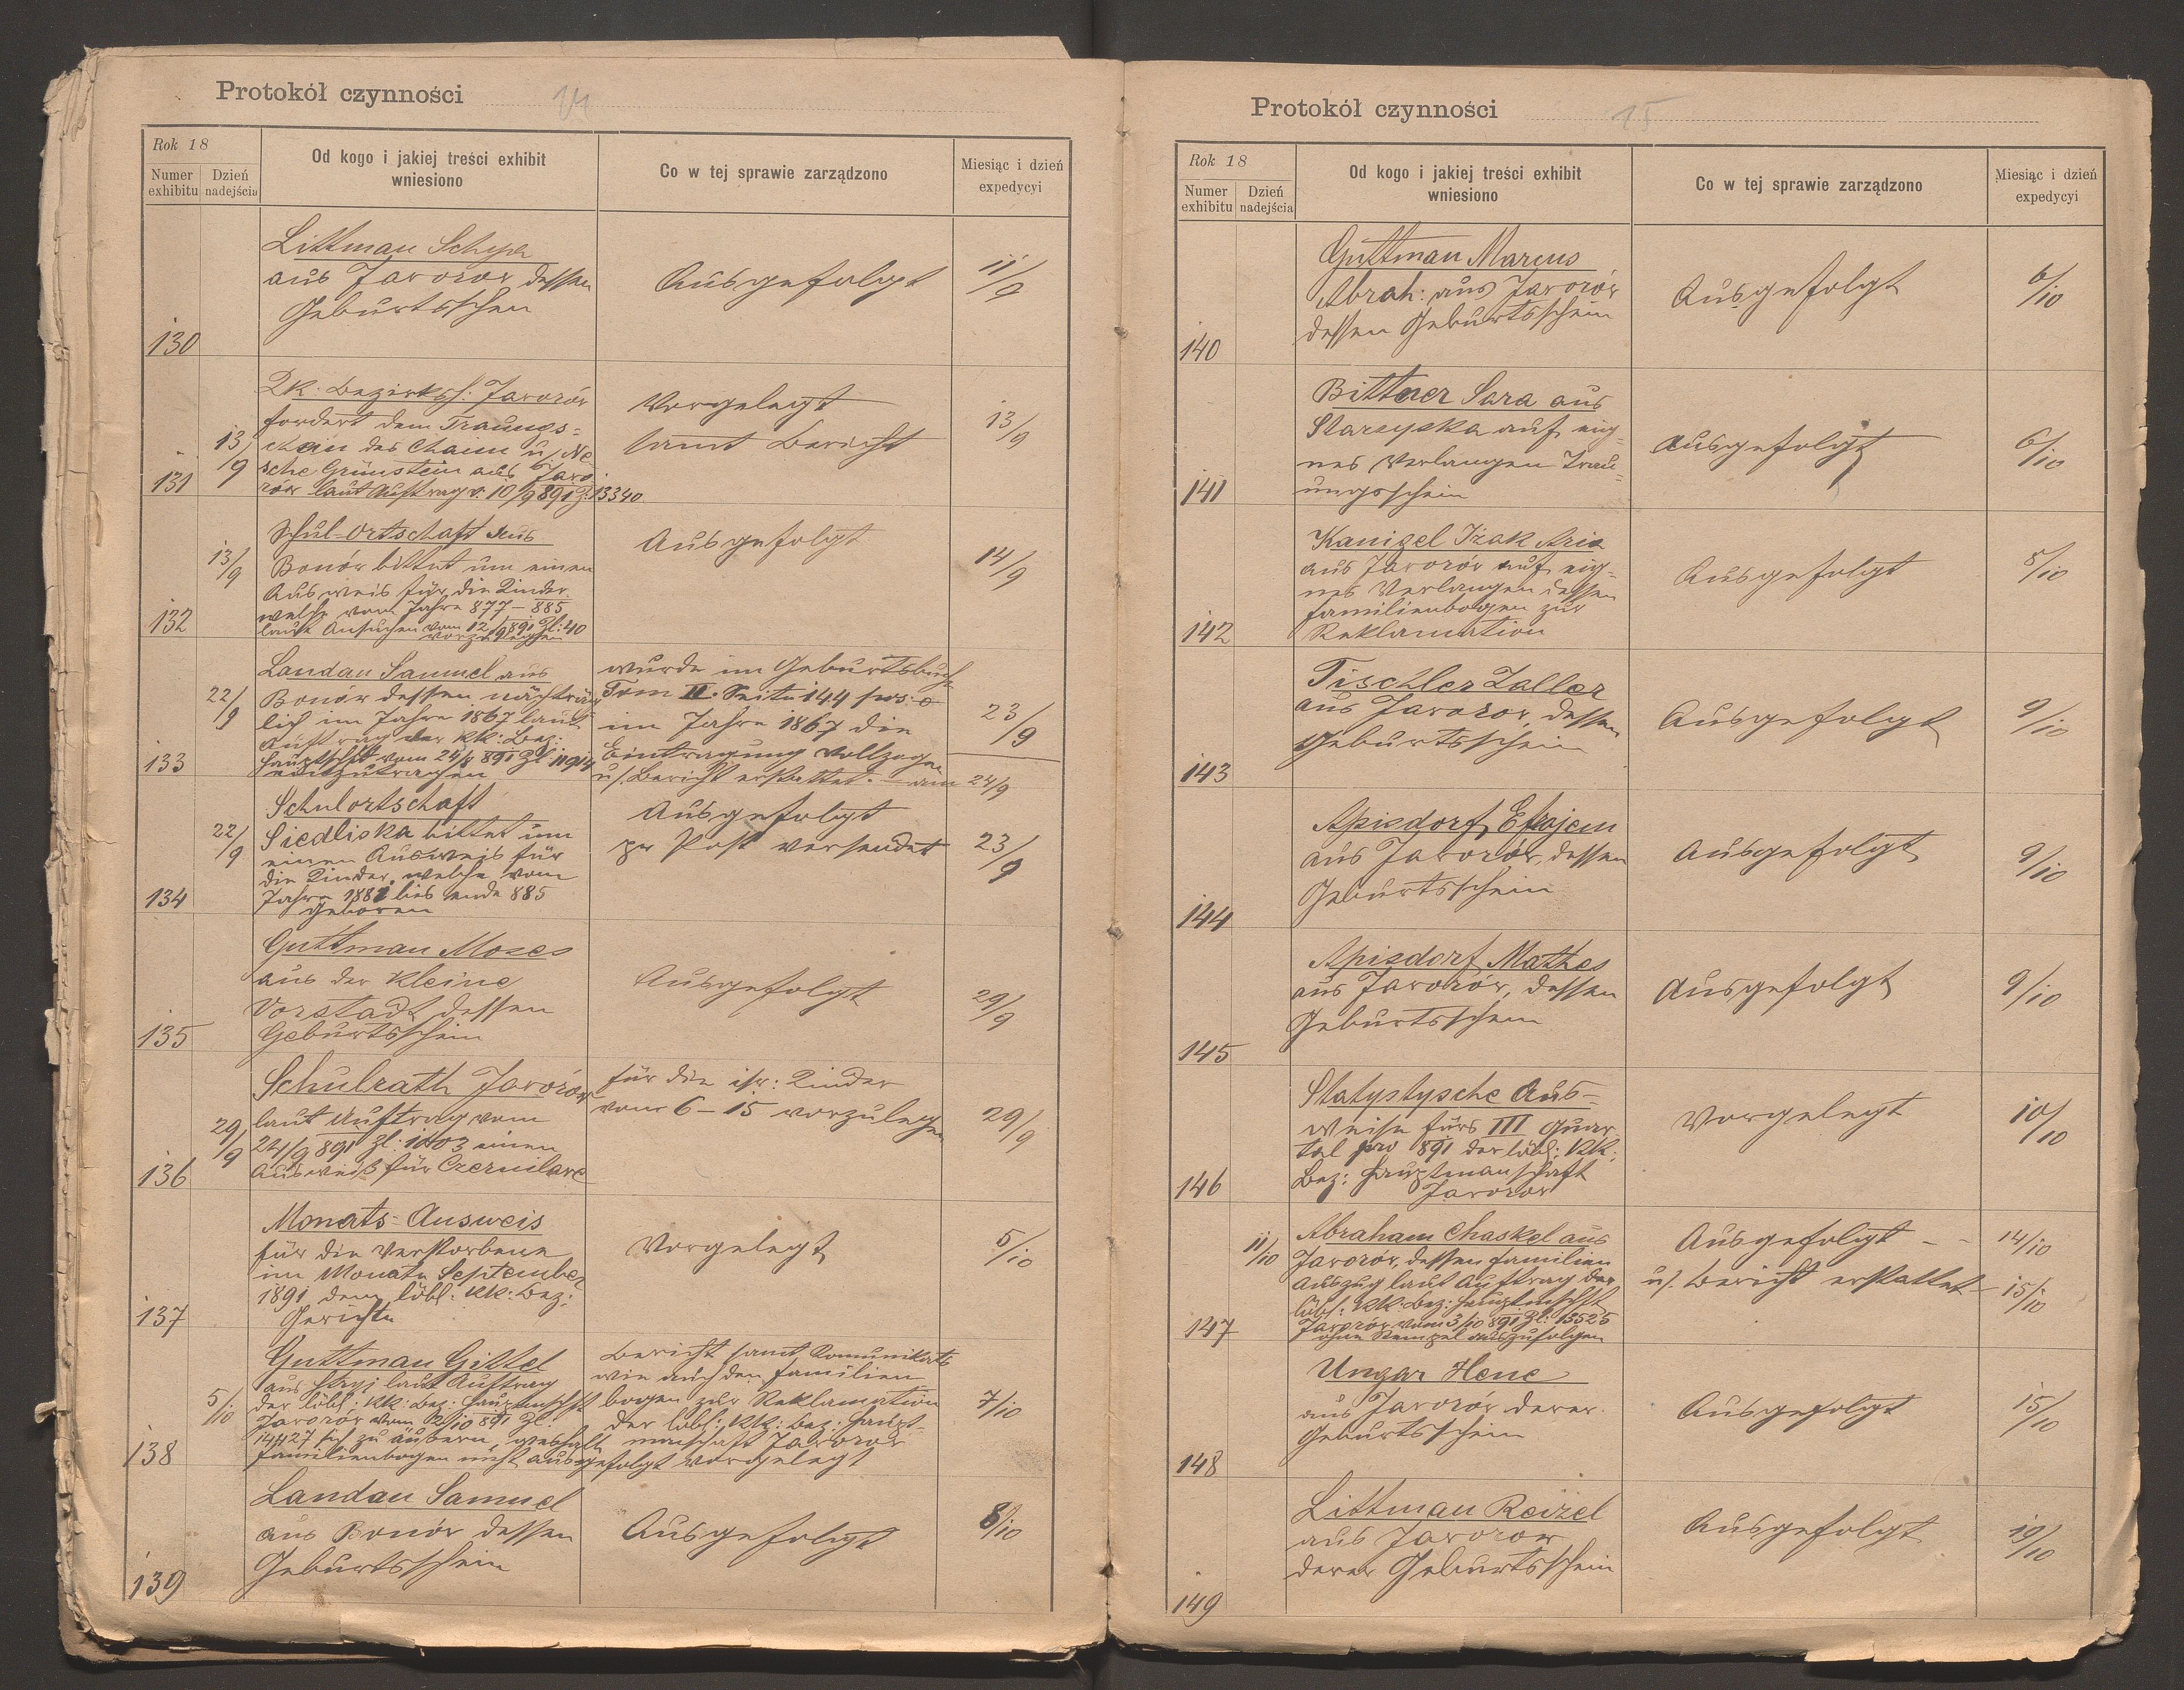 Protokół czynności 14
Rok 18
Numer exhibitu
Dzień nadejścia
Od kogo i jakiej treści exhibit wniesiono
Co w tej sprawie zarządzono
Miesiąc i dzień expedycyi
130
Littman Schya
aus Javorov dessen
Geburtsschein
Ausgefolgt
11/9
131
13/9
kk. Bezirksh: Javorów
fordert dem Trauungs=
schein des Chaim u/ Ne
sche Grünstein aus Javo
rów laut Auftrag v. 10/9 891 Z. 13340
Vorgelegt
samt Bericht
13/9
132
13/9
Schul-Ortschaft aus
Bonów bittet um einen
Ausweis für die Kinder
welche vom Jahre 877-885
laut Ansuchen vom 12/9 891 Zl: 40
vorzulegen
Ausgefolgt
14/9
133
22/9
Landau Samuel aus
Bonów dessen nachträg
lich im Jahre 1867 laut
Auftrag der kk: Bez:
Hauptschft vom 24/8 891 Zl 11914
einzutragen
wurde im Geburtsbuch
Tom II. Seite 144 pos: 6
im Jahre 1867 die
Eintragung vollzogen
u/. Bericht erstattet. - am 24/9
23/9
134
22/9
Schulortschaft
Siedliska bittet um
einen Ausweis für
die Kinder, welche vom
Jahre 1881 bis ende 885
geboren
Ausgefolgt
per Post versendet
23/9
135
Guttman Moses
aus der Kleine
Vorstadt dessen
Geburtsschein
Ausgefolgt
29/9
136
29/9
Schulrath Javorów
laut Auftrag vom
24/9 891 Zl. 1403 einen
Ausweiß für Czernilawe
für die isr: Kinder
vom 6-15 vorzulegen
29/9
137
Monats-Ausweis
für die Verstorbene
im Monate September
1891 dem löbl: kk: Bez:
Gerichte
Vorgelegt
5/10
138
5/10
Guttman Gittel
aus Stryj laut Auftrag
der löbl: kk: Bez: Hauptmschft
Javorów vom 2/10 891 Zl:
14427 sich zu äußern, weshalb
Familienbogen nicht ausgefolgt
Bericht samt Komunikats
wie auch den Familien
bogen zur Reklamation
der löbl: kk: Bez: Haupt-
manschaft Javorow
vorgelegt
7/10
139
Landau Samuel
aus Bonów dessen
Geburtsschein
Ausgefolgt
8/10
Protokół czynności 15
Rok 18
Numer exhibitu
Dzień nadejścia
Od kogo i jakiej treści exhibit wniesiono
Co w tej sprawie zarządzono
Miesiąc i dzień expedycyi
140
Guttman Marcus
Abrah: aus Javorów
dessen Geburtsschein
Ausgefolgt
6/10
141
Bittner Sara aus
Starzyska auf eig-
nes Verlangen Trau-
ungsschein
Ausgefolgt
6/10
142
Kanigel Izak Aria
aus Javorów auf eig-
nes Verlangen dessen
Familienbogen zur
Reklamation
Ausgefolgt
8/10
143
Tischler Zaller
aus Javorov, dessen
Geburtsschein
Ausgefolgt
9/10
144
Apisdorf Efrojem
aus Javorów, dessen
Geburtsschein
Ausgefolgt
9/10
145
Apisdorf Mathes
aus Javorów, dessen
Geburtsschein
Ausgefolgt
9/10
146
Statystysche Aus=
weise fürs III Quar
tal pro 891 der löbl: kk:
Bez: Hauptmanschaft
Javorov
Vorgelegt
10/10
147
11/10
Abraham Chaskel aus
Javorów, dessen Familien
Auszug laut Auftrag der
löbl: kk: Bez: Hauptmschft
Javorów vom 3/10 891 Zl: 15525
ohne Stempel auszufolgen
Ausgefolgt - - 14/10
u/. Bericht erstattet - 15/10
148
Ungar Hene
aus Javorów derer
Geburtsschein
Ausgefolgt
15/10
149
Littman Reizel
aus Javorow
derer Geburtsschein
Ausgefolgt
19/10